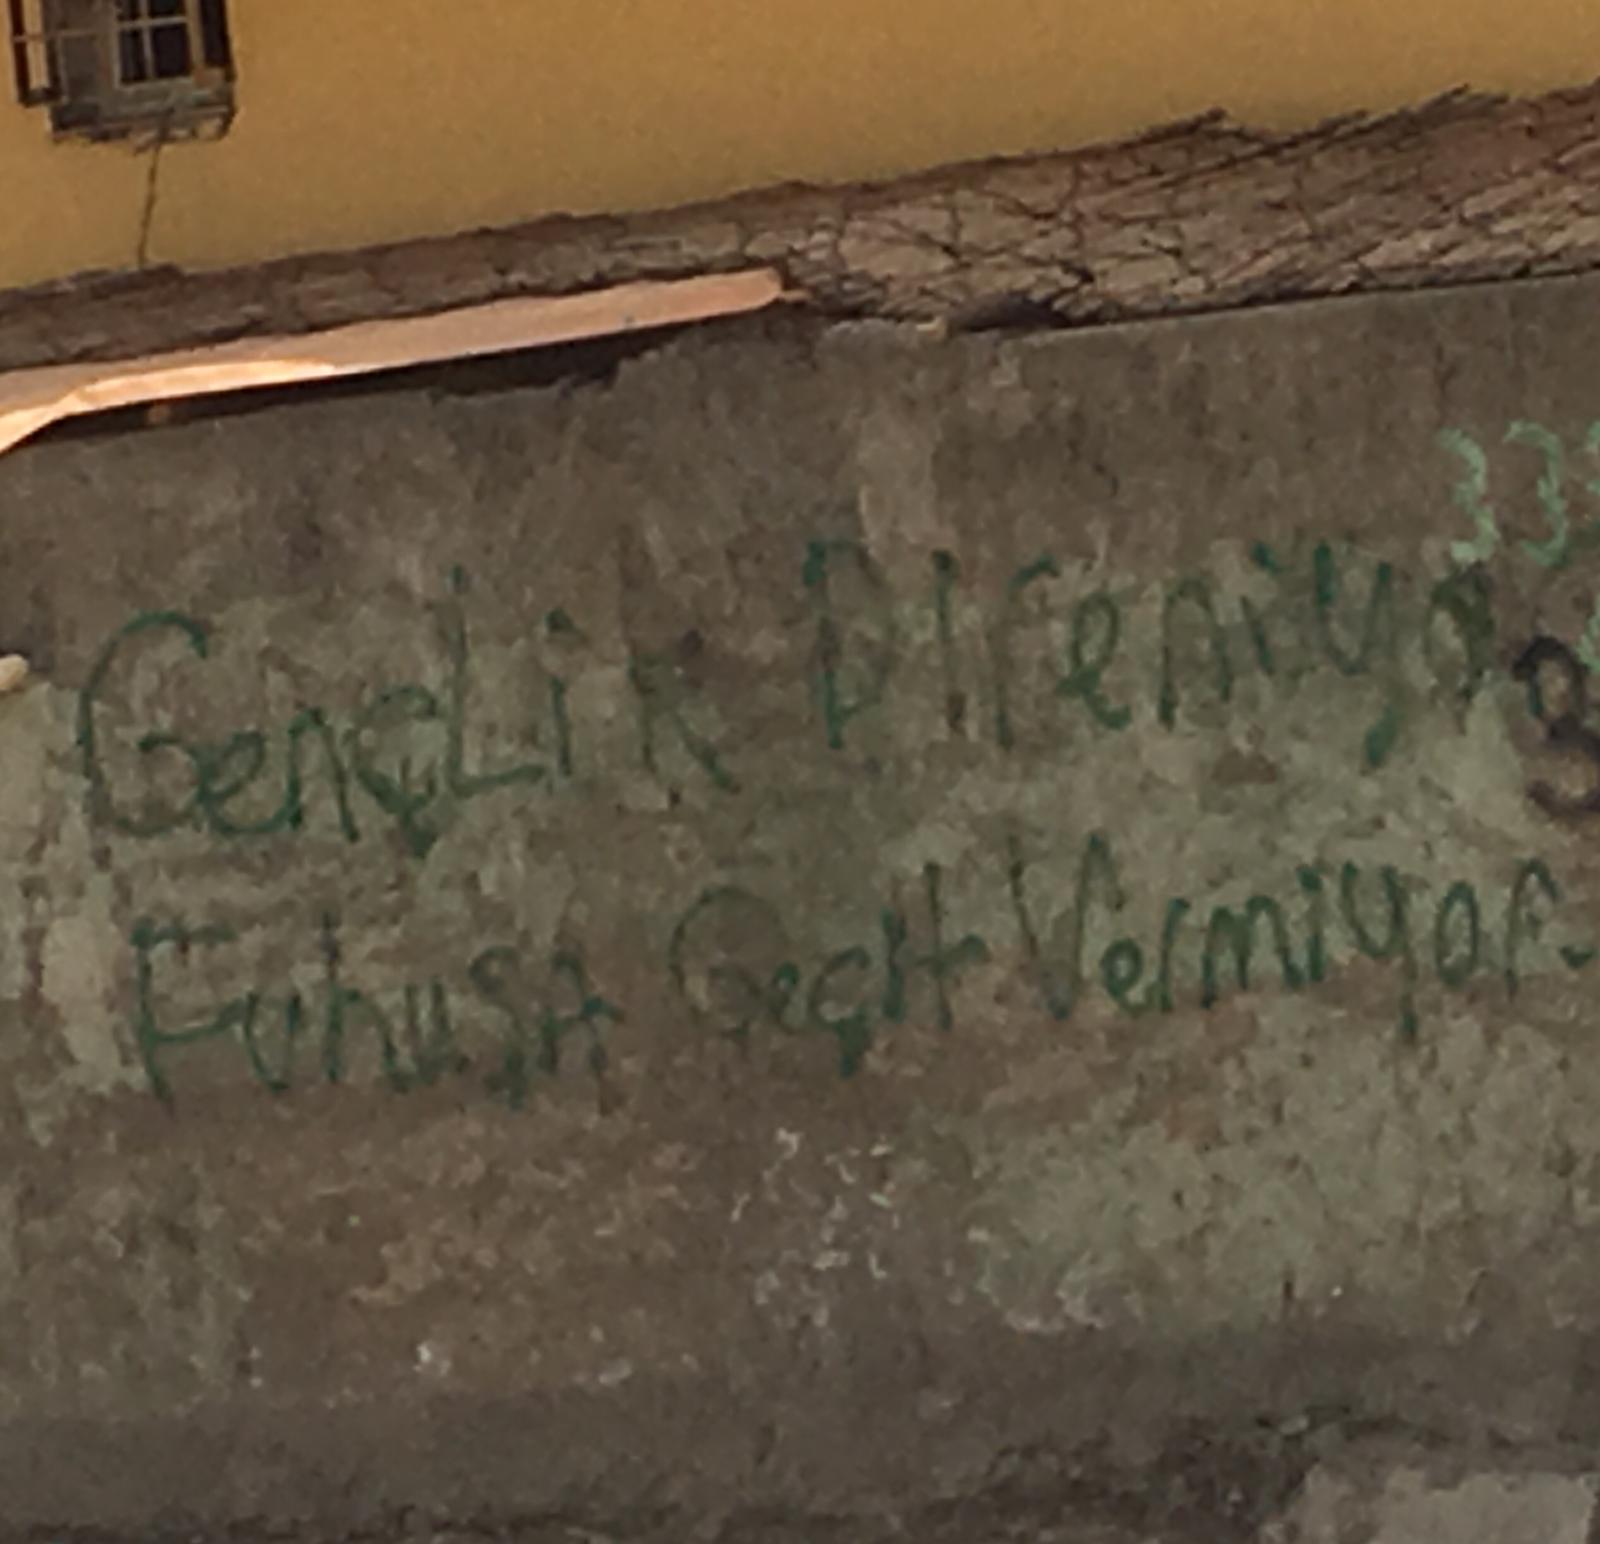 333
Gençlik Direniyo
Fuhuşa Geçit Vermiyor.